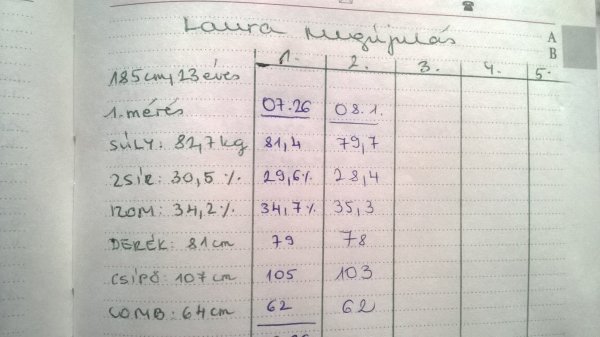 Laura Megújulás
A
B
1. 2. 3. 4. 5.
185cm, 23 éves
1. mérés 07.26 08.1.
SÚLY: 82,7 kg 81,4 79,7
ZSÍR: 30,5 % 29,6% 28,4
IZOM: 34,2% 34,7% 35,3
DERÉK: 81 cm 79 78
CSÍPŐ: 107 cm 105 103
COMB: 64 cm 62 62